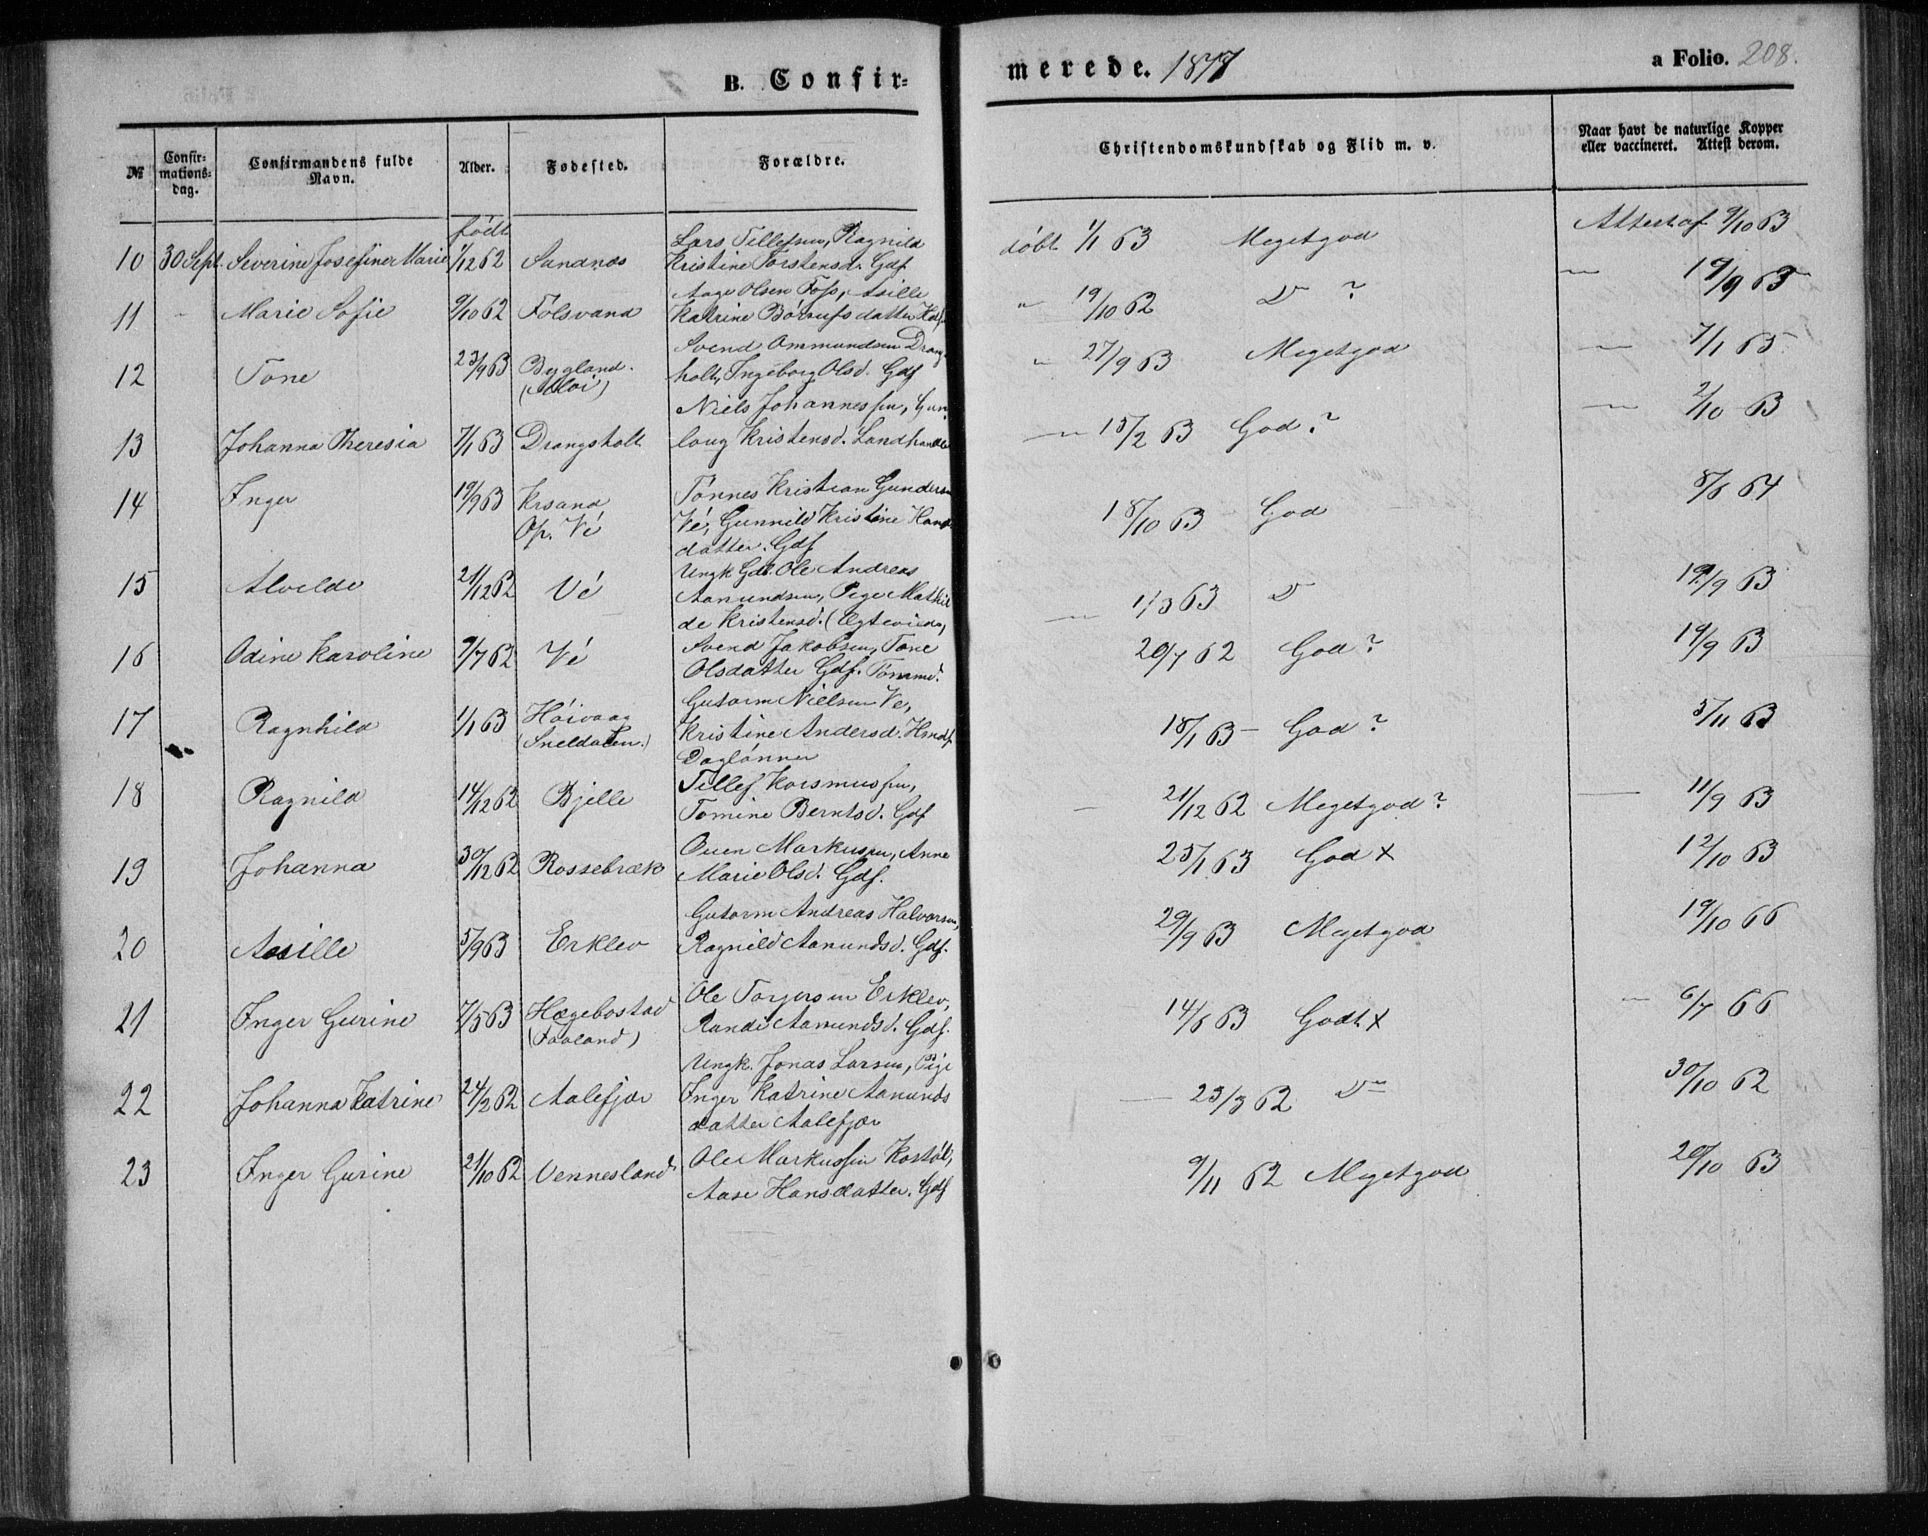 B. Confir=
merede. 1877
a Folio. 208.
№
Confir=
mations=
dag.
Confirmandens fulde
Navn.
Alder.
Fødested.
Forældre.
Christendomskundskab og Flid m. v.
Naar havt de naturlige Kopper
eller vaccineret. Attest derom.
født
Lars Tillefsen, Ragnild
10 30 Sept. Severine Josefine Marie 1/12 62 Sandnes Kristine Torstensd. Gdf. døbt 1/1 63 Megetgod Attest af 9/10 63
Aage Olsen Foss, Asille
11 - Marie Sofie 9/10 62 Følsvand Katrine datter " 19/10 62 D ? — 19/9 63
Svend Ommundsen Drang
12 Tone 23/9 63 Bygland. holt, Ingeborg Olsd. Gdf " 27/9 63 Megetgod — 7/1 65
Niels Johannessen, Gun
13 Johanna Theresia 7/1 63 Drangsholt loug Kristensd. Landhandler — 15/2 63 God ? — 2/10 63
14 Inger 19/9 63 Krsand, Tönnes Kristian Gunders 18/10 63 God 8/6 64
Op. Vé Vé, Gunnild Kristine Hans
datter. Gdf
Ungk Gdb. Ole Andreas
15 Alvilde 21/12 62 Vé Aamundsen, Pige Mathil 1/3 63 D 19/9 63
de Kristensd. (Ægteviede)
16 Odine Karoline 9/7 62 Vé Svend Jakobsen, Tone 20/7 62 God ? 19/9 63
Olsdatter Gdf. Tömmd.
Gutorm Nielsen Ve,
17 Ragnhild 1/1 63 Höivaag Kristine Andersd. Hmdf. 18/1 63 — God ? 5/11 63
(Sneldalen.) Daglønner
18 Ragnild 14/12 62 Bjelle Tellef Korsmussen, - 21/12 62 Megetgod ? — 11/9 63
Tomine Berntsd. Gdf
Ouen Markussen, Anne
19 Johanna 30/12 62 Rossebræk Marie Olsd. Gdf. 25/1 63 God x 12/10 63
Gutorm Andreas Halvorsen,
20 Assille 5/9 63 Erklev Ragnild Aamundsd. Gdf. 20/9 63 Megetgod 19/10 66
Ole Torjersen Erklev,
21 Inger Gurine 7/5 63 Hægebostad Rande Aamundsd. Gdf. 14/6 63 Godt x - 6/7 66
(Faaland)
Ungk. Jonas Larsen, Pige
22 Johanna Katrine 24/2 62 Aalefjær Inger Katrine Aamunds — 23/3 62 D— 30/10 62
datter Aalefjær
23 Inger Gurine 21/10 62 Vennesland Ole Markussen Kostöl, 9/11 62 Megetgod 20/10 63
Aase Hansdatter. Gdf